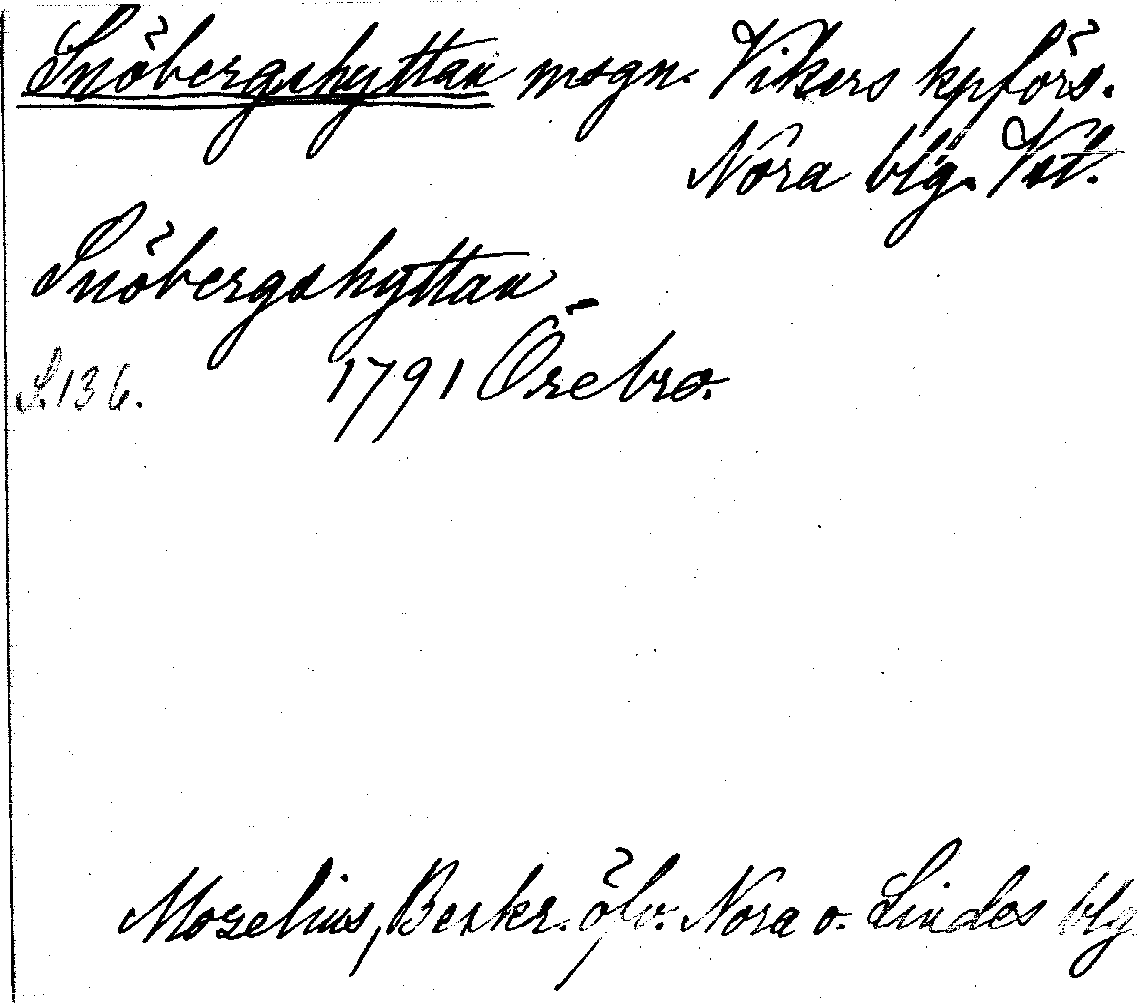 Snöbergshyttan msgn. Vikers kpförs.
Nora blg. Vstl.
Snöbergshyttan
S.136. 1791 Örebro.
Mozelius, Beskr. öfv. Nora o. Lindes blg